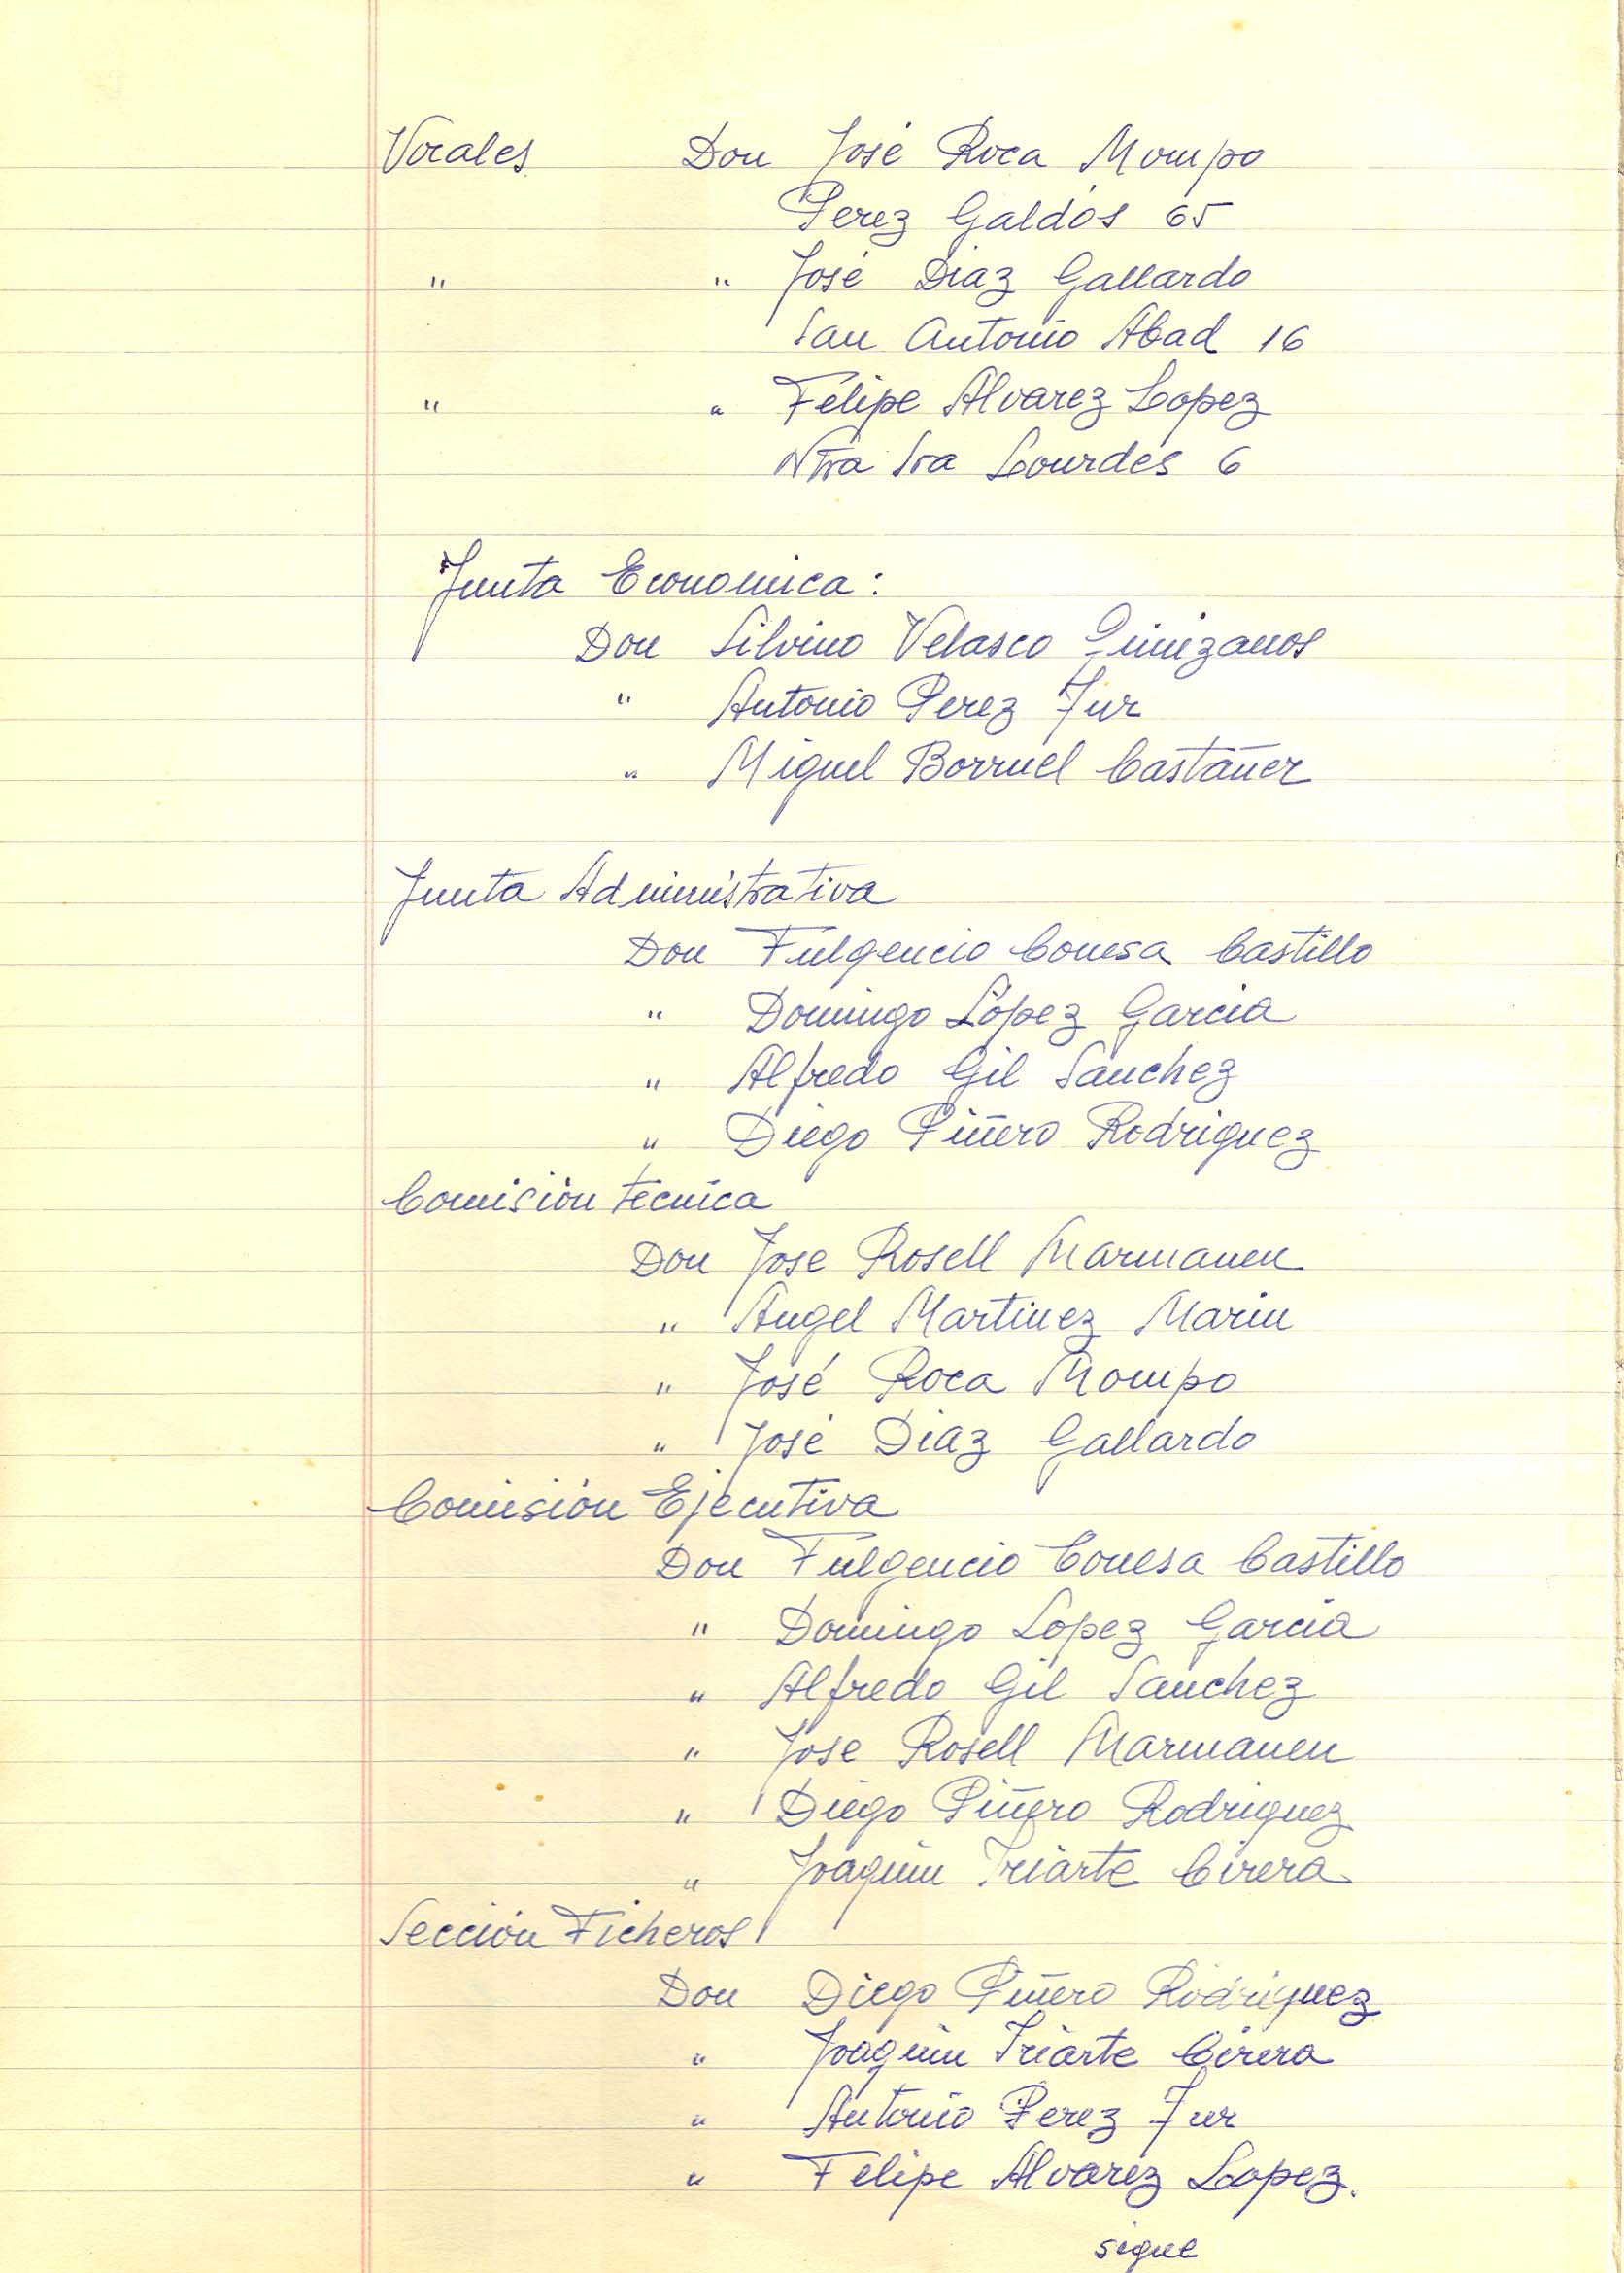 Vocales Don José Roca Mompo
Perez Galdós 65
" " José Diaz Gallardo
San Antonio Abad 16
" " Felipe Alvarez Lopez
Ntra Sra Lourdes 6
Junta Economica:
Don Silvino Velasco
" Antonio Perez Jur
" Miguel Borruel Castañer
Junta Administrativa
Don Fulgencio Conesa Castillo
" Domingo López Garcia
" Alfredo Gil Sanchez
" Diego Piñero Rodriguez
Comisión tecnica
Don Jose Rosell Marmaneu
" Angel Martinez Marin
" José Roca Mompo
" José Diaz Gallardo
Comisión Ejecutiva
Don Fulgencio Conesa Castillo
" Domingo Lopez Garcia
" Alfredo Gil Sanchez
" Jose Rosell Marmaneu
" Diego Piñero Rodriguez
" Joaquin Iriarte Cirera
Sección Ficheros
Don Diego Piñero Rodriguez
" Joaquin Iriarte Cirera
" Antonio Perez Jur
" Felipe Alvarez Lopez.
sigue